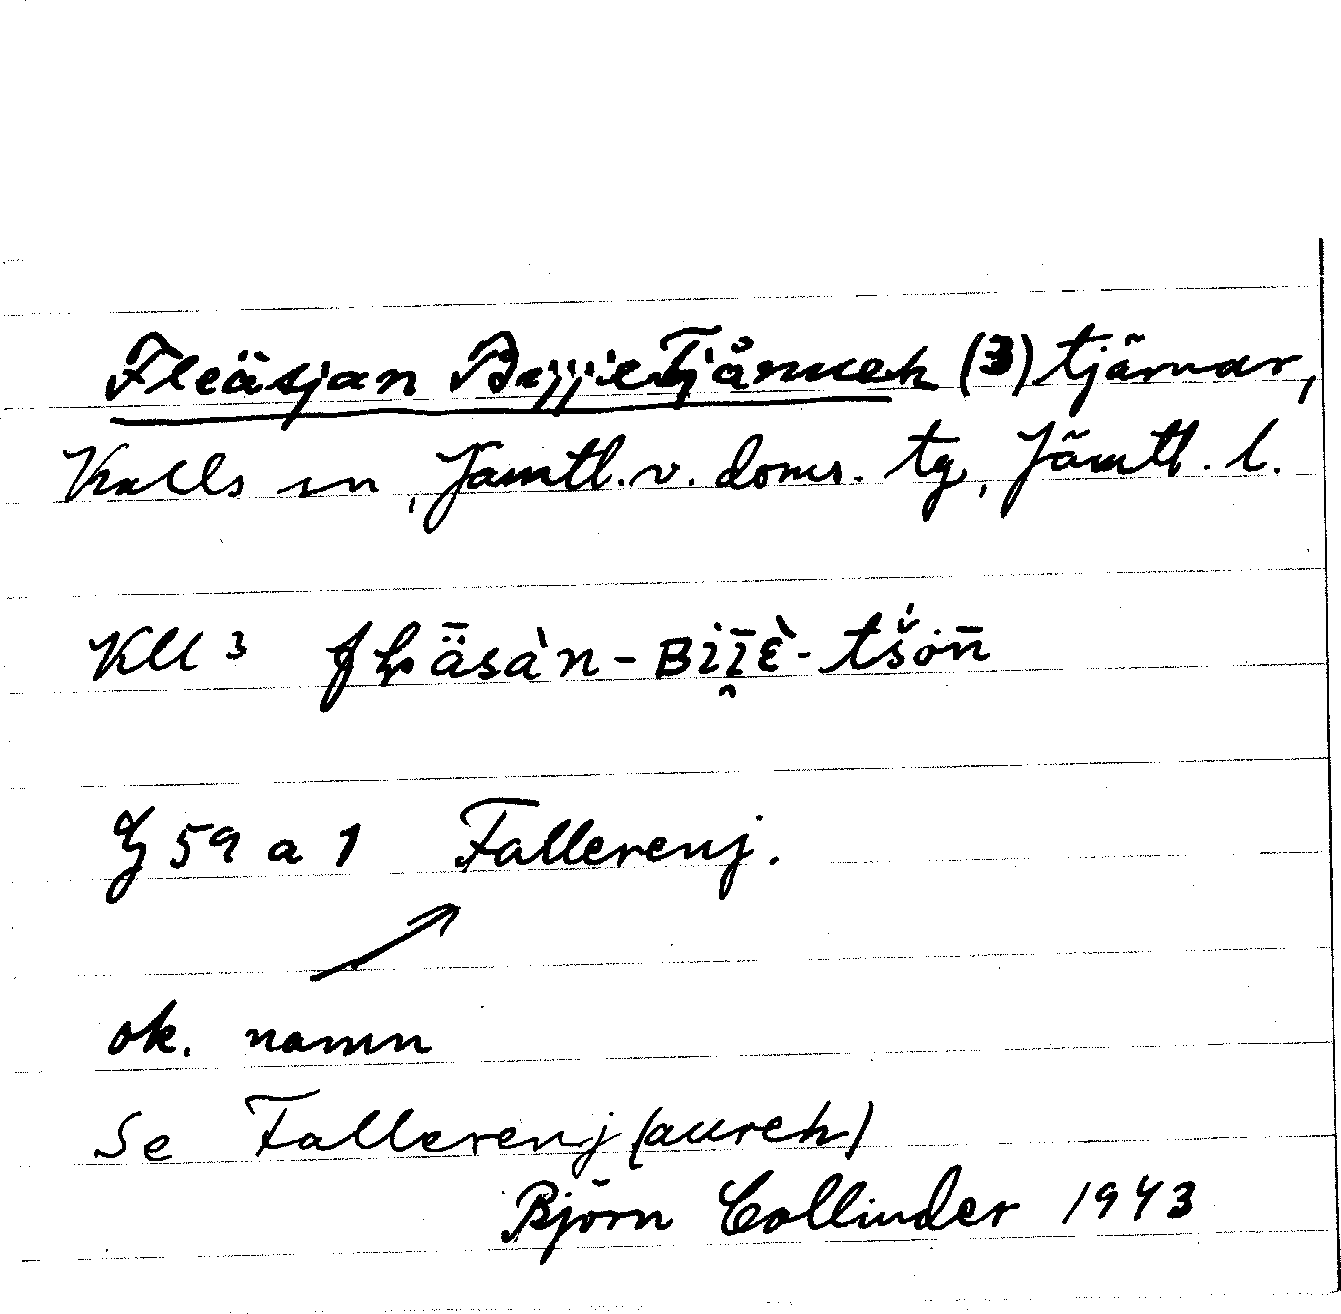 Fleäsjan BijjieTjånneh (3) tjärnar,
Kalls sn, Jämtl. v. doms. tg, Jämtl. l.
Kll 3 fʟäsàn-ʙiīὲ-tšón̄
§ 59 a 1 Fallerenj.
ok. namn
Se Fallerenj (aureh)
Björn Collinder 1943